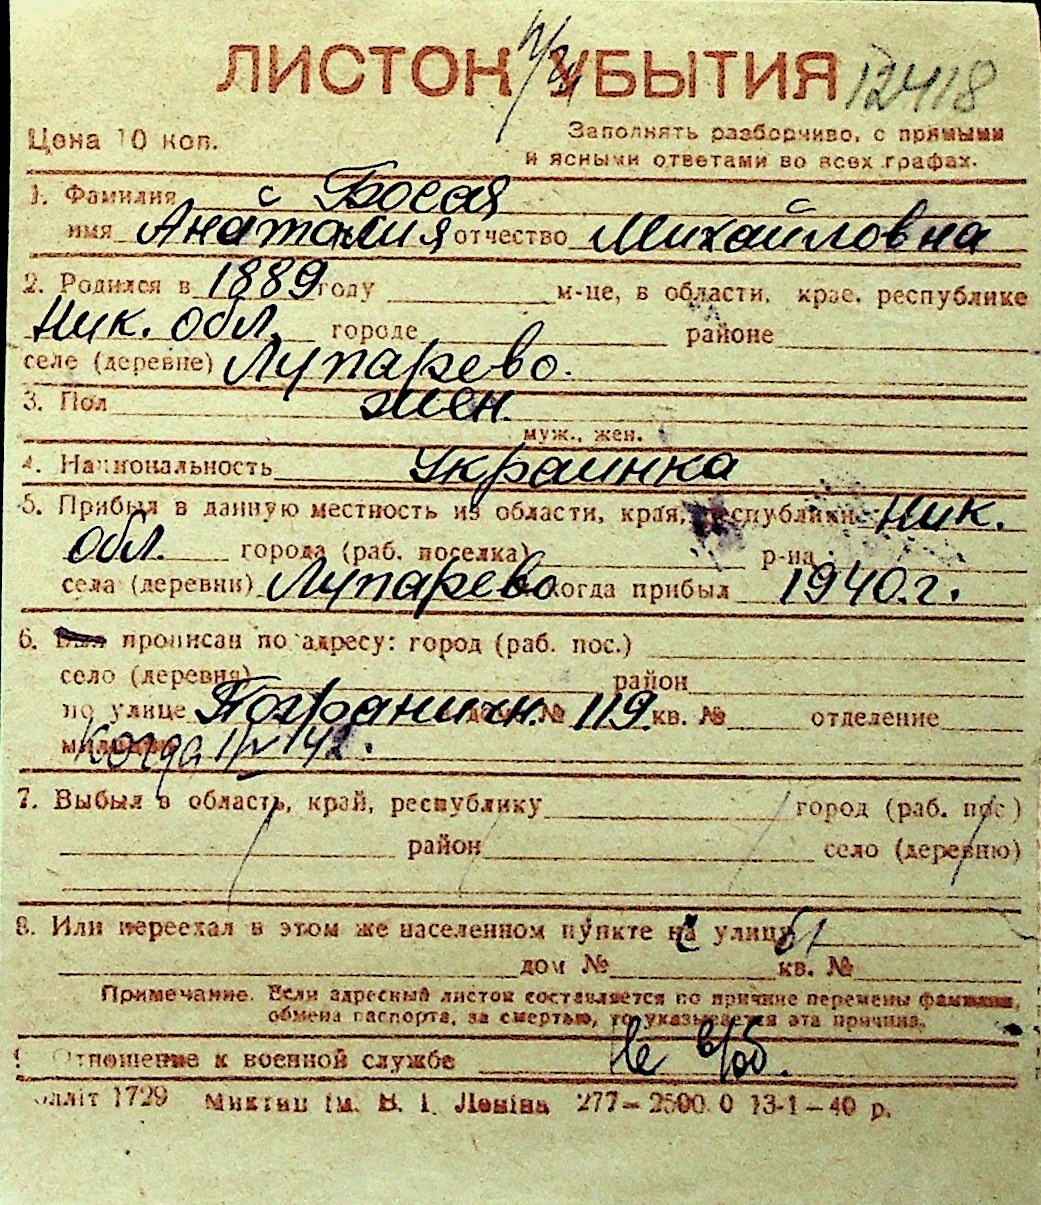 ЛИСТОК УБЫТИЯ 12418
Цена 10 коп.
Заполнять разборчиво, с прямыми
и ясными ответами во всех графах.
1. Фамилия Босая
имя Анаталия отчество Михайловна
2. Родился в 1889 году м-це, в области, крае, республике
Ник. обл. городе районе
селе (деревне) Лупарево.
3. Пол жен.
муж., жен.
4. Национальность Украинка
5. Прибыл в данную местность из области, края, республики Ник.
обл. города (раб. поселка) р-на
села (деревни) Лупарево когда прибыл 1940.г.
6. Был прописан по адресу: город (раб. пос.)
село (деревня) район
по улице Пограничн. дом № 119 кв. № отделение
милиции Когда
7. Выбыл в область, край, республику город (раб. пос)
район село (деревню)
8. Или переехал в этом же населенном пункте на улицу
дом № кв. №
Примечание. Если адресный листок составляется по причине перемены фамилии,
обмена паспорта, за смертью, то указывается эта причина.
Отношение к военной службе не в/об.
1729 ім. В. І. Леніна 277—2500.0 13-1—40 р.